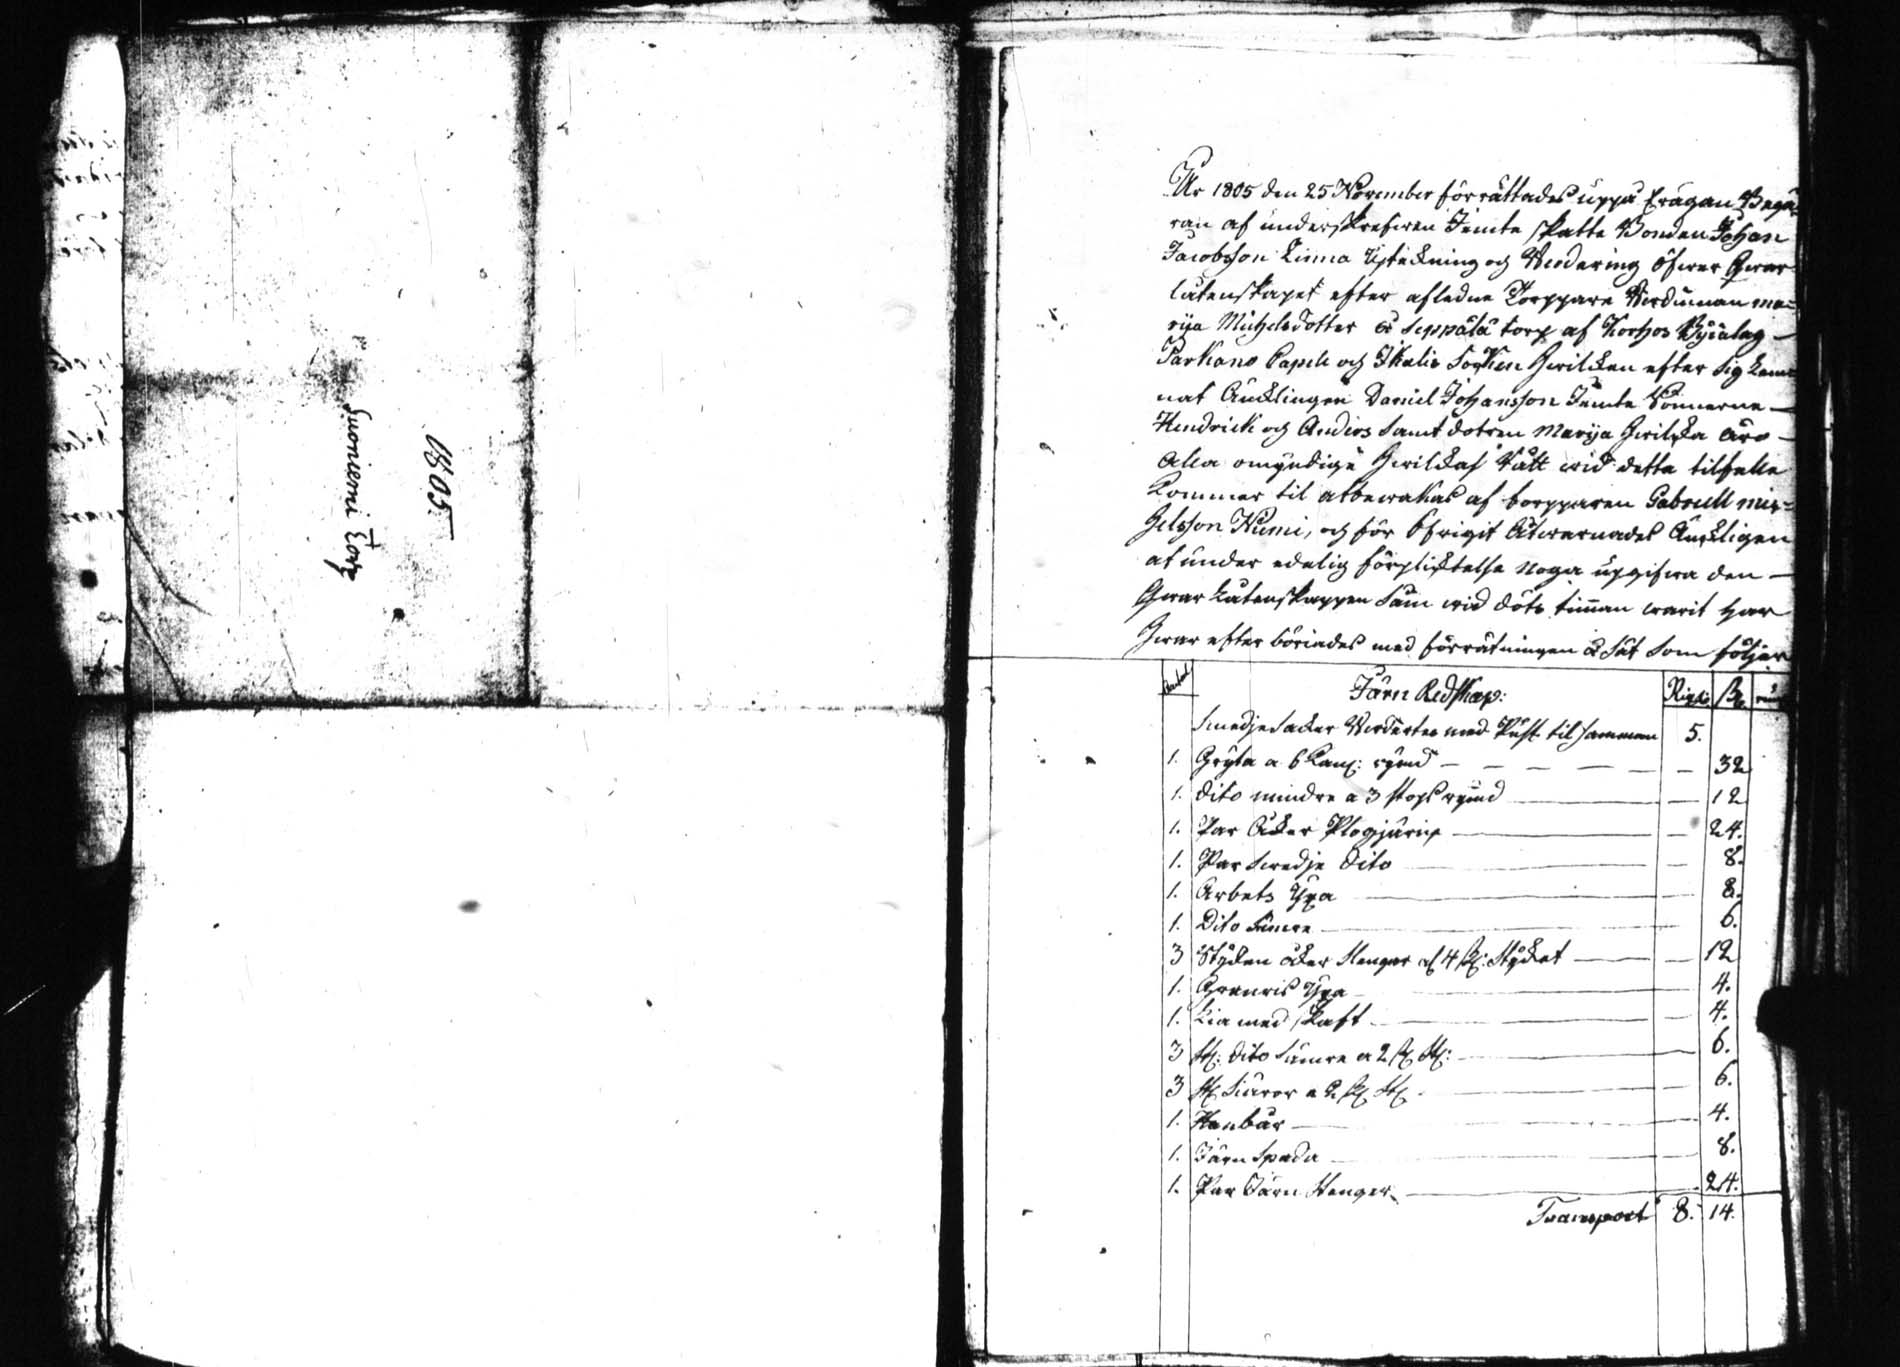 1805
Suoniemi Torp
År 1805 den 25 November förrättades uppå frågan Begä
ran af underskrefwen Jemte skatte Bonden Johan
Jacobsson Linna Upteckning och Werdering öfwer Qwar
låtenskapet efter aflednne Torppare Werdinnan Ma=
rija Michelsdotter å Seppälä torp af Korhos Byalag
Parkano Capele och Ikalis Socken Hwilcken efter sig Lem
nat Äncklingen Daniel Johansson Jemte Sönnerne
Hendrick och Anders samt dotren Marija Hwilcka äro
alla omyndige Hwilckas Rätt wid detta tilfälle
Kommer til at bewakas af torpparen Gabriell Mic=
helsson Niemi, och för Öfrigit Åtwarnades Änckligen
at under edelig förplicktelse noga upgifwa den
Qwar Låtenskappen Som wid döts timman warit har
Hwar efter börjades med förrätningen å sät Som följer
Järn Redskap: Rigd: ß r
Smedje Saker Werderter med Pust til samman 5.
1. Gryta a 6 Kan: rymd 32
1. dito mindre a 3 stops rymd 12
1. Par Åker Plogjärn 24.
1. Par Swedje Dito 8.
1. Arbets Yxa 8.
1. Dito Sämre 6.
3 Stycken åker Stenger af 4 ß: Stycket 12
1. Grenris Yxa 4.
1. Lia med skaft 4.
3 St: dito Sämre a 2 ß St: 6.
3 St Skäror a 2 ß St 6.
1. Nanbar 4.
1. Järn Spada 8.
1. Par Järn Stenger 24.
Transport 8. 14.